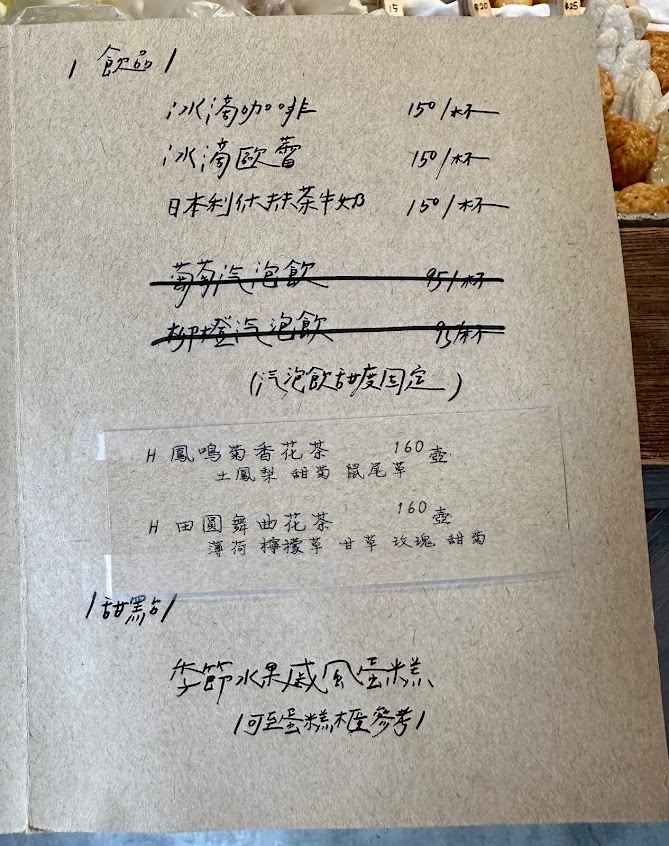 15 $20 $25
/ 飲品 /
冰滴咖啡 150/杯
冰滴歐蕾 150/杯
日本利休抹茶牛奶 150/杯
葡萄汽泡飲 95/杯
柳橙汽泡飲 95/杯
(汽泡飲甜度固定)
H 鳳鳴菊香花茶 160壺
土鳳梨 甜菊 鼠尾草
H 田園舞曲花茶 160壺
薄荷 檸檬草 甘草 玫瑰 甜菊
/甜點/
季節水果戚風蛋糕
/可至蛋糕櫃參考/